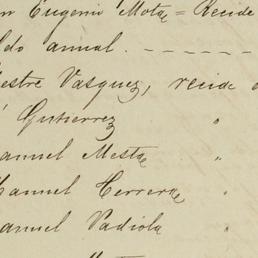 n Eugenio Mota = Recide
ldo annual. - - - - - -
estre Vasquez, recide
Gutierrez "
anuel Mesta "
anuel Herrera "
anuel Vadiola "